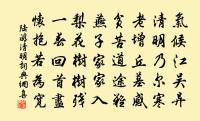 氣候江吳异
清明乃尔寒
老增丘墓感
貧苦道途艱
燕子家家入
梨花樹樹殘
一春回首盡
懷抱若為寬
陆游清明詞典網喜